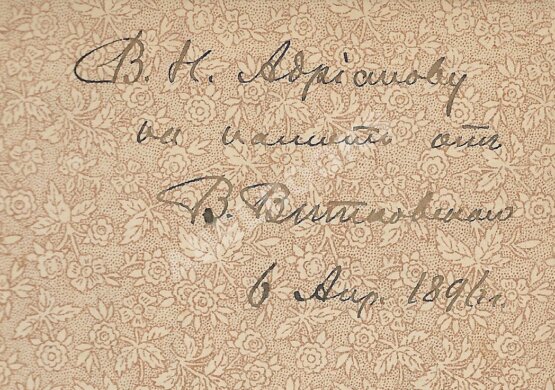 В. Н. Адріанову
на память отъ
В. Витковскаго
6 Апр. 1891 г.